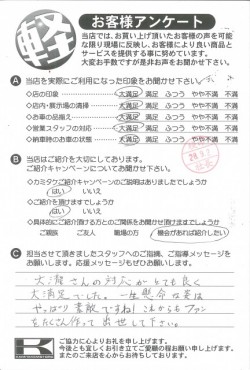 軽
お客様アンケート
当店では、お買い上げ頂いたお客様の声を可能
な限り現場に反映し、お客様により良い商品と
サービスを提供する事に努めています。
大変お手数ですが是非お声をお聞かせ下さい。
A 当店を実際にご利用になった印象をお聞かせ下さい。
◇店の印象 大満足 満足 ふつう やや不満 不満
◇店内・展示場の清掃 大満足 満足 ふつう やや不満 不満
◇お車の品揃え 大満足 満足 ふつう やや不満 不満
◇営業スタッフの対応 大満足 満足 ふつう やや不満 不満
◇納車時のお車の状態 大満足 満足 ふつう やや不満 不満
B 当店はご紹介を大切にしております。
ご紹介キャンペーンについてお聞かせ下さい。
◇カミタケご紹介キャンペーンのご説明はありましたでしょうか
はい いいえ
◇ご紹介を頂けますでしょうか
はい いいえ
◇具体的にご紹介頂ける方とのご関係をお聞かせ頂けますでしょうか
ご親族 ご友人 職場の方 機会があれば紹介したい
C 担当させて頂きましたスタッフへのご指摘、ご指導メッセージを
お願いします。応援メッセージもぜひお願いします。
大瀧さんの対応がとても良く
大満足でした。一生懸命な姿は
やっぱり素敵ですね!これからもファン
をたくさん作って出世して下さい。
K
ご協力に心よりお礼を申し上げます。
今後とも宜しくお引き立てご愛顧の程お願い申し上げます。
またのご来店を心からお待ちしております。